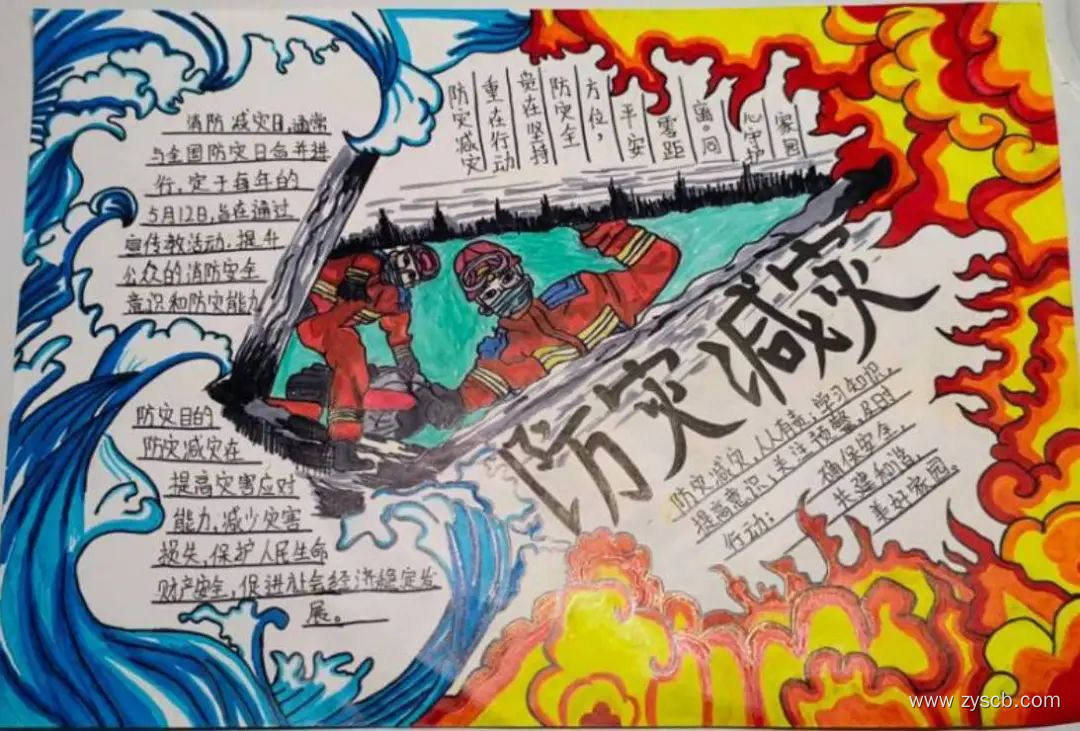 消防减灾日,通常
与全国防灾日合并进
行,定于每年的
5月12日,旨在通过
宣传教活动,提升
公众的消防安全
意识和防灾能力
防灾减灾
重在行动
贵在坚持
防灾全
方位,
平安
零距
离·同
心守护
家园
防灾减灾
防灾减灾,人人有责;学习知识,
提高意识;关注预警,及时
行动;确保安全,
共建和谐,
美好家园。
防灾目的
防灾减灾在
提高灾害应对
能力,减少灾害
损失,保护人民生命
财产安全,促进社会经济稳定发
展。
www.zyscb.com